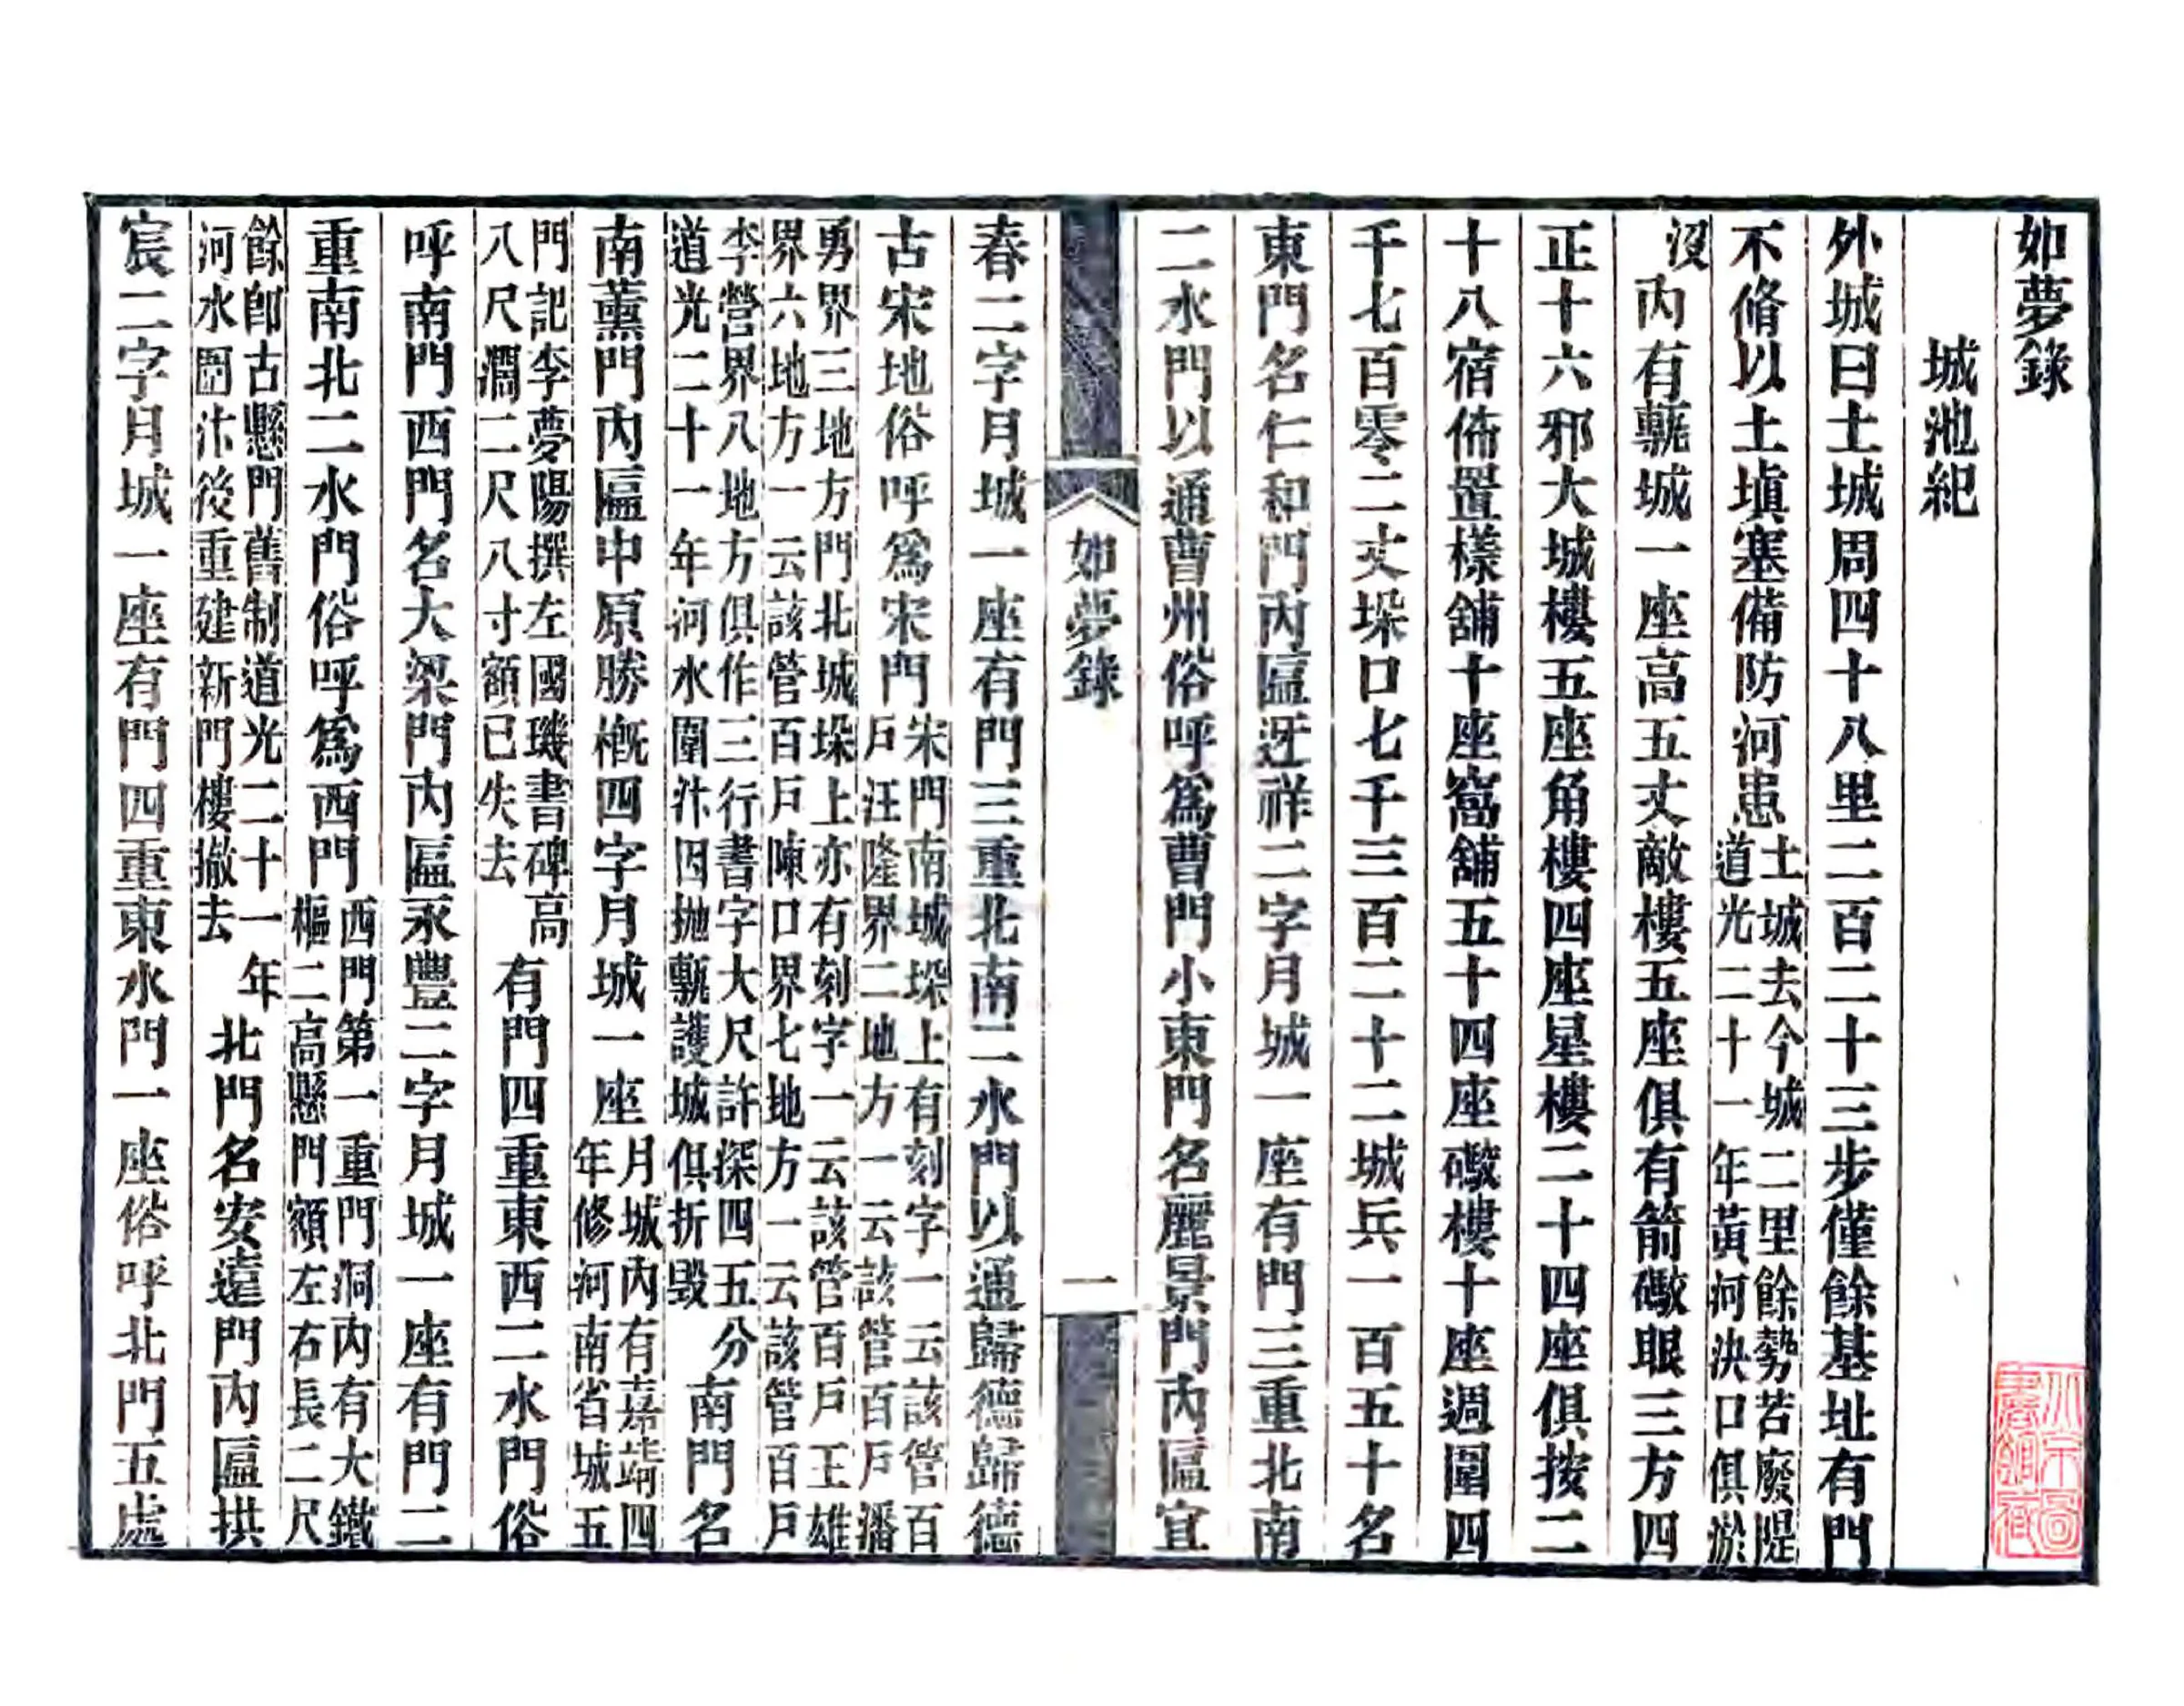 如夢錄
城池紀
外城曰土城周四十八里二百二十三步僅餘基址有門
不脩以土塡塞備防河患土城去今城二里餘勢若廢隄道光二十一年黃河決口俱淤
沒內有甎城一座高五丈敵樓五座俱有箭礮眼三方四
正十六邪大城樓五座角樓四座星樓二十四座俱按二
十八宿佈置樣舖十座窩舖五十四座礮樓十座週圍四
千七百零二丈垛口七千三百二十二城兵一百五十名
東門名仁和門內匾迓祥二字月城一座有門三重北南
二水門以通曹州俗呼爲曹門小東門名麗景門內匾宜
如夢錄
一
春二字月城一座有門三重北南二水門以通歸德歸德
古宋地俗呼爲宋門宋門南城垛上有刻字一云該管百戶汪隆界二地方一云該管百戶潘
勇界三地方門北城垛上亦有刻字一云該管百戶王雄界六地方一云該管百戶陳口界七地方一云該管百戶
李營界八地方俱作三行書字大尺許深四五分道光二十一年河水圍汴四拋甎護城俱折毀南門名
南薰門內匾中原勝槪四字月城一座月城內有嘉靖四年修河南省城五
門記李夢陽撰左國璣書碑高八尺濶二尺八寸額已失去有門四重東西二水門俗
呼南門西門名大梁門內匾永豐二字月城一座有門二
重南北二水門俗呼爲西門西門第一重門洞內有大鐵樞二高懸門額左右長二尺
餘卽古懸門舊制道光二十一年河水圍汴後重建新門樓撤去北門名安遠門內匾拱
宸二字月城一座有門四重東水門一座俗呼北門五處